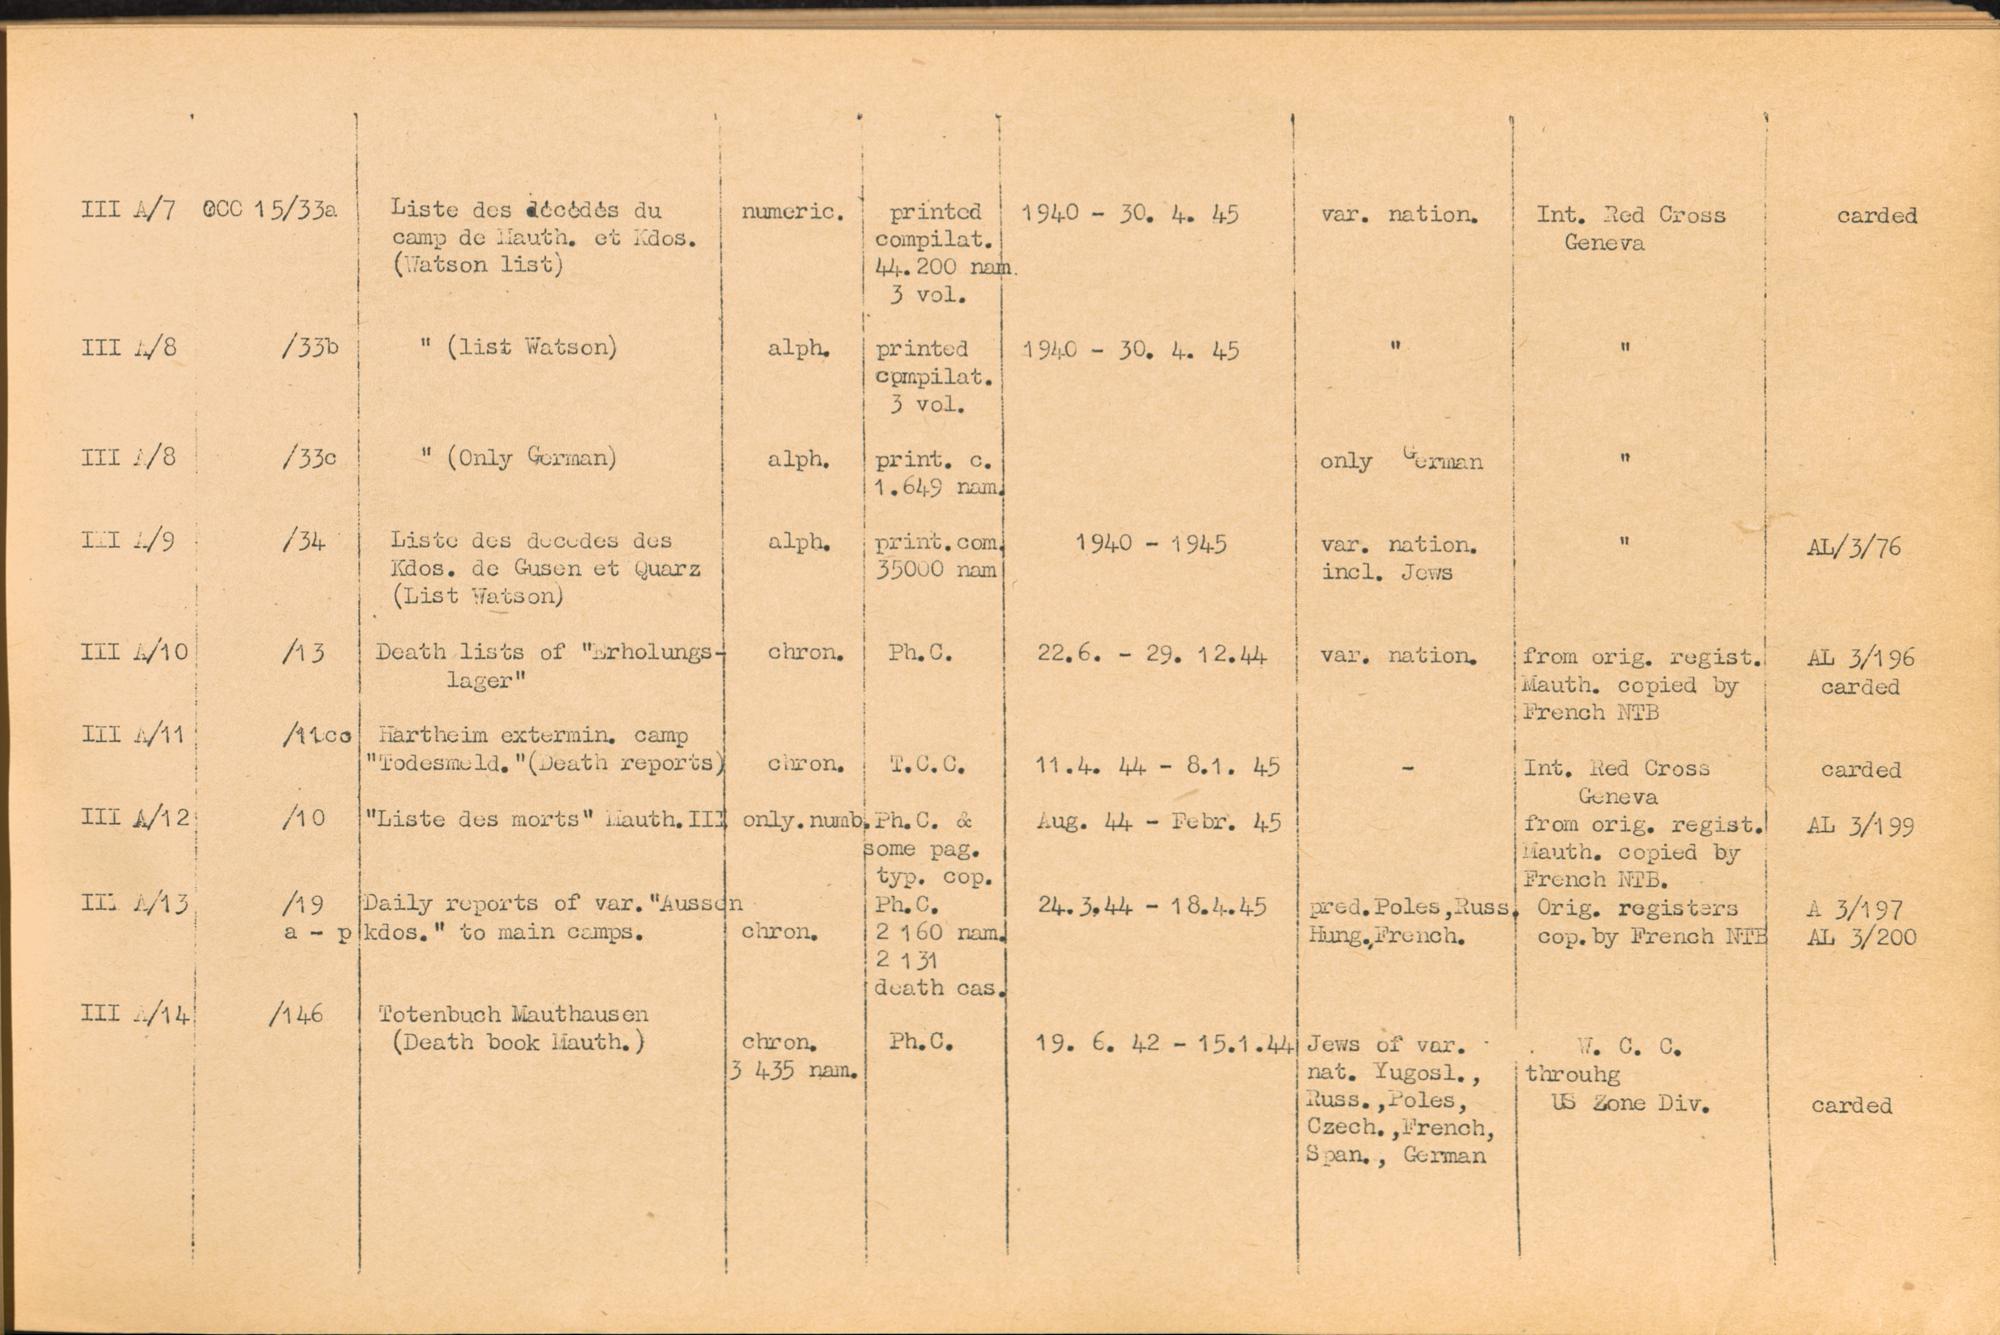 III A/7 OCC 15/33a Liste des décédés du numeric. printed 1940 - 30. 4. 45 var. nation. Int. Red Cross carded
camp de Mauth. et Kdos. compilat. Geneva
(Watson list) 44.200 nam.
3 vol.
III A/8 /33b " (list Watson) alph. printed 1940 - 30. 4. 45 " "
compilat.
3 vol.
III A/8 /33c " (Only German) alph. print. c. only German "
1.649 nam.
III A/9 /34 Liste des decedes des alph. print.com. 1940 - 1945 var. nation. " AL/3/76
Kdos. de Gusen et Quarz 35000 nam incl. Jews
(List Watson)
III A/10 /13 Death lists of "Erholungs- chron. Ph.C. 22.6. - 29. 12.44 var. nation. from orig. regist. AL 3/196
lager" Mauth. copied by carded
French NTB
III A/11 Hartheim extermin. camp
"Todesmeld."(Death reports) chron. T.C.C. 11.4. 44 - 8.1. 45 - Int. Red Cross carded
Geneva
III A/12 /10 "Liste des morts" Mauth.III only.numb. Ph.C. & Aug. 44 - Febr. 45 from orig. regist. AL 3/199
some pag. Mauth. copied by
typ. cop. French NTB.
III A/13 /19 Daily reports of var."Aussen Ph.C. 24.3,44 - 18.4.45 pred.Poles,Russ. Orig. registers A 3/197
a - p kdos." to main camps. chron. 2 160 nam. Hung.,French. cop. by French NTB AL 3/200
2 131
death cas.
III A/14 /146 Totenbuch Mauthausen
(Death book Mauth.) chron. Ph.C. 19. 6. 42 - 15.1.44 Jews of var. W. C. C.
3 435 nam. nat. Yugosl., throuhg
Russ.,Poles, US Zone Div. carded
Czech.,French,
Span., German